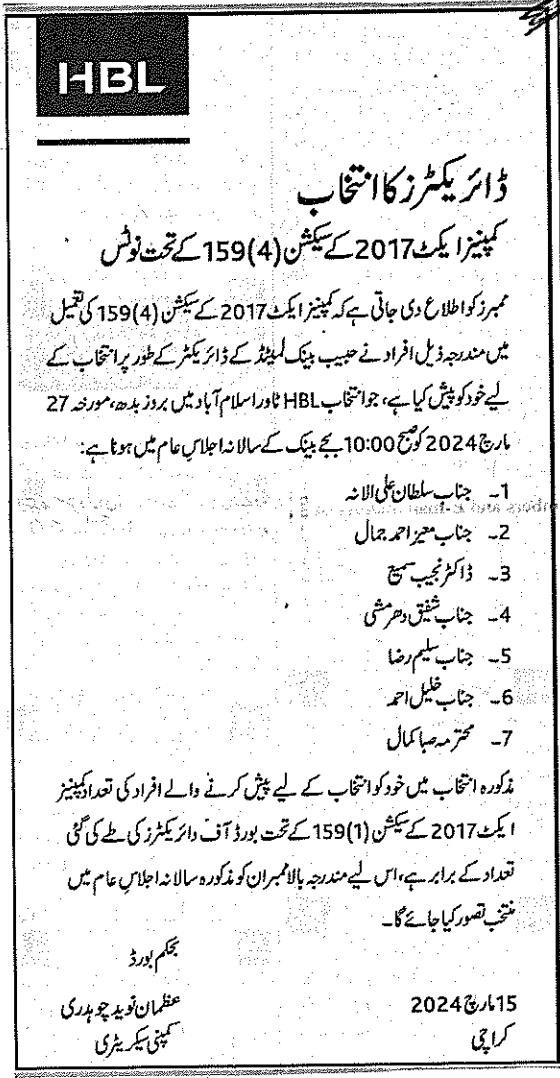 HBL
ڈائریکٹرز کا انتخاب
کمپنیز ایکٹ 2017 کے سیکشن (4)159 کے تحت نوٹس
ممبرز کو اطلاع دی جاتی ہے کہ کمپنیز ایکٹ 2017 کے سیکشن (4)159 کی تعمیل
میں مندرجہ ذیل افراد نے حبیب بینک لمیٹڈ کے ڈائریکٹر کے طور پر انتخاب کے
لیے خود کو پیش کیا ہے، جو انتخاب HBL ٹاور اسلام آباد میں بروز بدھ، مورخہ 27
مارچ 2024 کو صبح 10:00 بجے بینک کے سالانہ اجلاس عام میں ہونا ہے:
1۔ جناب سلطان علی الانہ
2۔ جناب معیز احمد جمال
3۔ ڈاکٹر نجیب سمیع
4۔ جناب شفیق دھرمشی
5۔ جناب سلیم رضا
6۔ جناب خلیل احمد
7۔ محترمہ صبا کمال
مذکورہ انتخاب میں خود کو انتخاب کے لیے پیش کرنے والے افراد کی تعداد کمپنیز
ایکٹ 2017 کے سیکشن (1)159 کے تحت بورڈ آف ڈائریکٹرز کی طے کی گئی
تعداد کے برابر ہے، اس لیے مندرجہ بالا ممبران کو مذکورہ سالانہ اجلاسِ عام میں
منتخب تصور کیا جائے گا۔
بحکم بورڈ
15 مارچ 2024 عظمان نوید چوہدری
کراچی کمپنی سیکریٹری